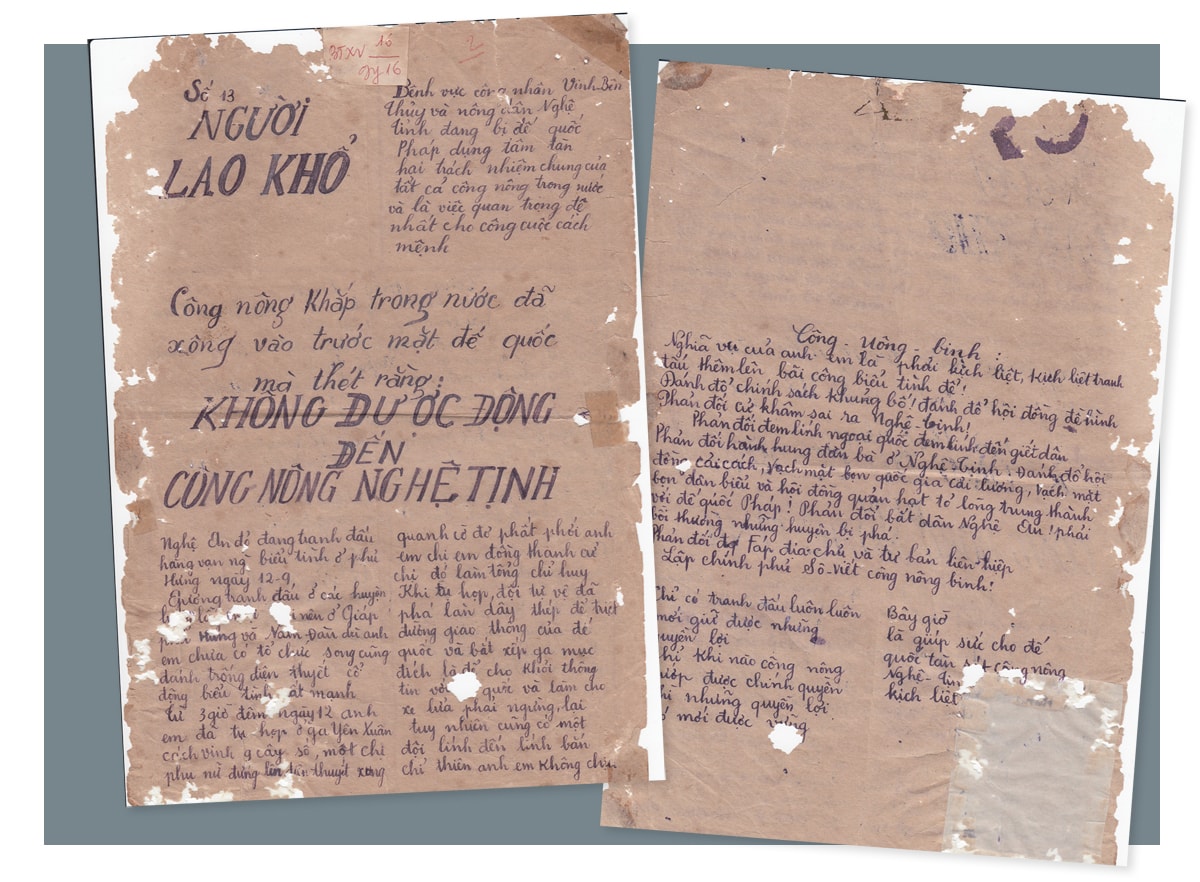 Số 13
NGƯỜI
LAO KHỔ
Bênh vực công nhân Vinh-Bến
Thủy và nông dân Nghệ
tinh đang bị đế quốc
Pháp dụng tâm tàn
hại trách nhiệm chung của
tất cả công nông trong nước
và là việc quan trọng đệ
nhất cho công cuộc cách
mệnh
Công nông Khắp trong nước đã
xông vào trước mặt đế quốc
mà thét rằng:
KHÔNG ĐƯỢC ĐỘNG
ĐẾN
CÔNG NÔNG NGHỆ TỊNH
Nghệ An đỏ đang tranh đấu
hàng vạn ng biểu tình ở phủ
Hưng ngày 12-9,
tranh đấu ở các huyện
nên ở Giáp
Hưng và Nam Đàn dù anh
em chưa có tổ chức song cũng
đánh trống diễn thuyết cổ
động biểu tình rất mạnh
Từ 3 giờ đêm ngày 12 anh
em đã tụ họp ở ga Yên Xuân
cách vinh 9 cây số một chị
phụ nữ đứng lên diễn thuyết xung
quanh cờ đỏ phất phới anh
em chị em đồng thanh cử
chị đó làm tổng chỉ huy
Khi tụ họp, đội tự vệ đã
phá làn dây thép để triệt
đường giao thông của đế
quốc và bắt xếp ga mục
đích là để cho Khỏi thông
tin với quốc và làm cho
xe lửa phải ngừng lại
tuy nhiên cũng có một
đội lính đến lính bắn
chỉ thiên anh em không chịu
Công - nông - binh :
Nghĩa vụ của anh em là phải kịch liệt, kịch liệt tranh
đấu thêm lên bãi công biểu tình đề!
Đánh đổ chính sách khủng bố! đánh đổ hội đồng đề hình
Phản đối cử khâm sai ra Nghệ-tịnh!
Phản đối đem lính ngoại quốc đem lính đến giết dân
Phản đối hành hung đàn bà ở Nghệ-tinh. Đánh đổ hội
đồng cải cách, vạch mặt bọn quốc gia cải lương, vạch mặt
bọn dân biểu và hội đồng quản hạt tỏ lòng trung thành
với đế quốc Pháp! Phản đối bắt dân Nghệ An! phải
bồi thường những huyện bị phá.
Phản đối Fáp địa chủ và tư bản liên hiệp
Lập chính phủ Sô-viết công nông binh!
Chỉ có tranh đấu luôn luôn
mới giữ được những
quyền lợi
Chỉ Khi nào công nông
cướp được chính quyền
thì những quyền lợi
đó mới được vững
Bây giờ
là giúp sức cho đế
quốc tàn sát công nông
Nghệ-tin
kịch liệt